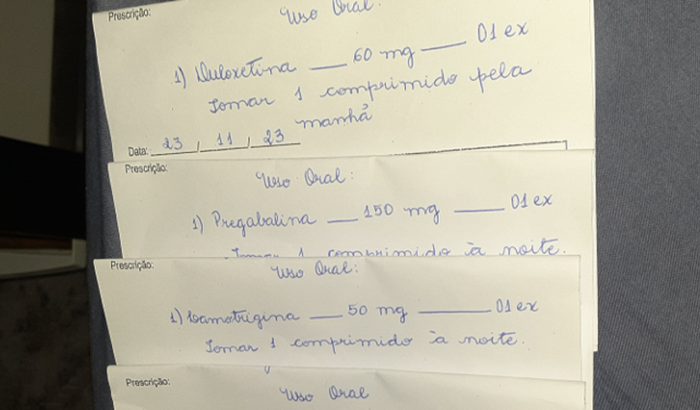 Prescrição:
Uso Oral:
1) Duloxetina — 60 mg — 01 ex
Tomar 1 comprimido pela
manhã
Data: 23 / 11 / 23
Prescrição:
Uso Oral:
1) Pregabalina — 150 mg — 01 ex
Tomar 1 comprimido à noite.
Prescrição:
Uso Oral:
1) Lamotrigina — 50 mg — 01 ex
Tomar 1 comprimido à noite.
Prescrição:
Uso Oral